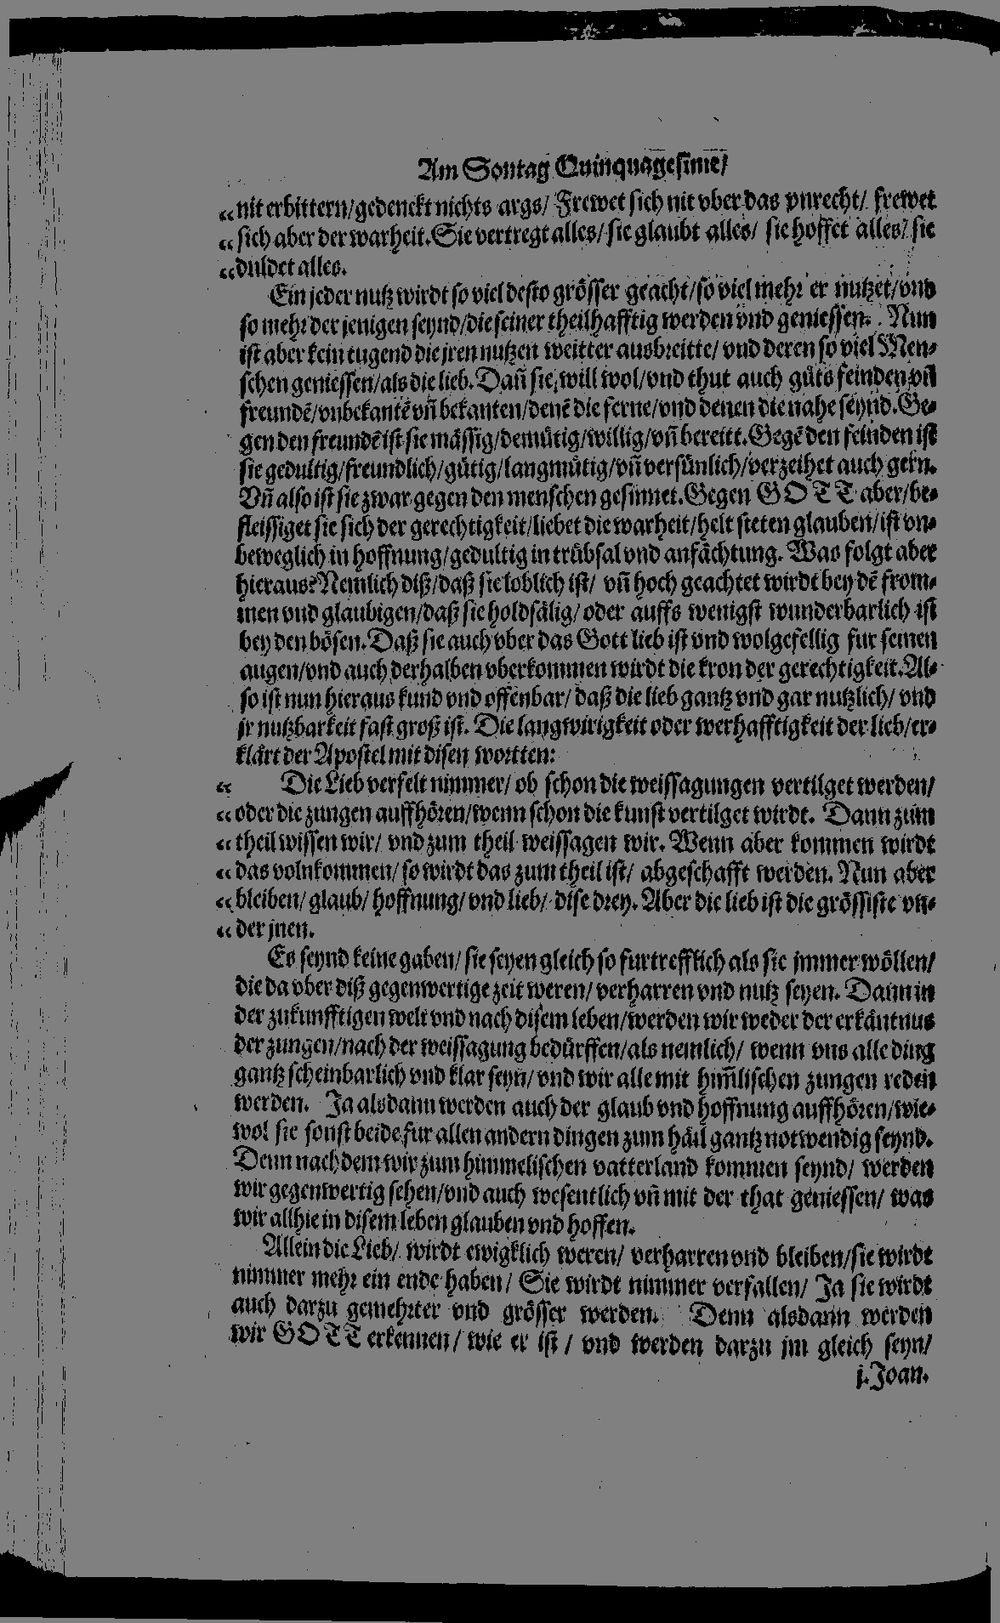 Am Sontag Quinquagesime/
„nit erbittern/gedenckt nichts args/ Frewet sich nit vber das vnrecht/ frewet
„sich aber der warheit. Sie vertregt alles/ sie glaubt alles/ sie hoffet alles/ sie
„duldet alles.
Ein jeder nutz wirdt so viel desto grösser geacht/so viel mehr er nutzet/vnd
so mehr der jenigen seynd/die seiner theilhafftig werden vnd geniessen. Nun
ist aber kein tugend die jren nutzen weitter ausbreitte/ vnd deren so viel Men⸗
schen geniessen/als die lieb. Dañ sie will wol/vnd thut auch gůts feinden vñ
freundē/vnbekantē vñ bekanten/denē die ferne/vnd denen die nahe seynd. Ge⸗
gen den freundē ist sie mässig/demütig/willig/vñ bereitt. Gegē den feinden ist
sie gedultig/freundlich/gütig/langmütig/vñ versünlich/verzeihet auch gern.
Vñ also ist sie zwar gegen den menschen gesinnet. Gegen GOTT aber/be⸗
fleissiget sie sich der gerechtigkeit/liebet die warheit/helt steten glauben/ist vn⸗
beweglich in hoffnung/gedultig in trübsal vnd anfächtung. Was folgt aber
hieraus? Nemlich diß/daß sie loblich ist/ vñ hoch geachtet wirdt bey dē from⸗
men vnd glaubigen/daß sie holdsälig/ oder auffs wenigst wunderbarlich ist
bey den bösen. Daß sie auch vber das Gott lieb ist vnd wolgefellig fur seinen
augen/vnd auch derhalben vberkommen wirdt die kron der gerechtigkeit. Al⸗
so ist nun hieraus kund vnd offenbar/ daß die lieb gantz vnd gar nutzlich/ vnd
jr nutzbarkeit fast groß ist. Die langwirigkeit oder werhafftigkeit der lieb/er⸗
klärt der Apostel mit disen wortten:
„ Die Lieb verfelt nimmer/ ob schon die weissagungen vertilget werden/
„oder die zungen auffhören/wenn schon die kunst vertilget wirdt. Dann zum
„theil wissen wir/ vnd zum theil weissagen wir. Wenn aber kommen wirdt
„das volnkommen/ so wirdt das zum theil ist/ abgeschafft werden. Nun aber
„bleiben/ glaub/ hoffnung/ vnd lieb/ dise drey. Aber die lieb ist die grössiste vn⸗
„der jnen.
Es seynd keine gaben/ sie seyen gleich so furtrefflich als sie jmmer wöllen/
die da vber diß gegenwertige zeit weren/ verharren vnd nutz seyen. Dann in
der zukunfftigen welt vnd nach disem leben/werden wir weder der erkäntnus
der zungen/nach der weissagung bedürffen/als nemlich/ wenn vns alle ding
gantz scheinbarlich vnd klar seyn/ vnd wir alle mit him̃lischen zungen reden
werden. Ja alsdann werden auch der glaub vnd hoffnung auffhören/wie⸗
wol sie sonst beide fur allen andern dingen zum häil gantz notwendig seynd.
Denn nachdem wir zum himmelischen vatterland kommen seynd/ werden
wir gegenwertig sehen/vnd auch wesentlich vñ mit der that geniessen/ was
wir allhie in disem leben glauben vnd hoffen.
Allein die Lieb/ wirdt ewigklich weren/ verharren vnd bleiben/sie wirdt
nimmer mehr ein ende haben/ Sie wirdt nimmer verfallen/ Ja sie wirdt
auch darzu gemehrter vnd grösser werden. Denn alsdann werden
wir GOTT erkennen/ wie er ist/ vnd werden darzu jm gleich seyn/
j. Joan.